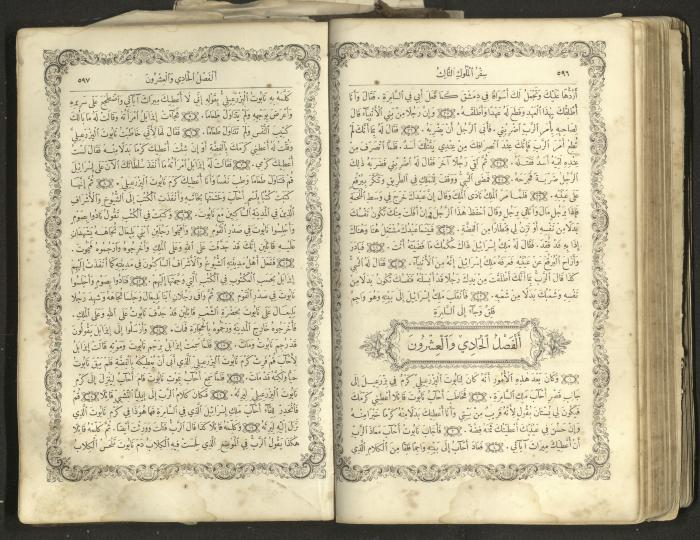 ٥٩٦ سِفْرُ ٱلْمُلُوكِ ٱلثَّالِثُ
أردّها عليك وتجعل لك أسواقًا في دمشق كما جعل أبي في السامرة. فقال وأنا
أطلقك بهذا العهد وقطع له عهدًا وأطلقه. وإن رجلًا من بني الأنبياء قال
لصاحبه بأمر الرب اضربني. فأبى الرجل أن يضربه. فقال له بما أنك لم
تطع أمر الرب فإنك عند انصرافك من عندي يقتلك أسد. فلما انصرف من
عنده لقيه أسد فقتله. ثم لقي رجلًا آخر فقال له اضربني فضربه ذلك
الرجل ضربة فجرحه. فمضى النبي ووقف للملك في الطريق وتنكر
على عينيه. فلما عبر الملك نادى الملك وقال إن عبدك خرج في وسط الحرب
فإذا برجل مال وأتاني برجل وقال احفظ هذا الرجل وإن أفلت منك تكون نفسك
بدلًا من نفسه أو تزن لي قنطارًا من الفضة. وفيما عبدك مشتغل هنا وهناك
إذا به قد فقد. فقال له ملك إسرائيل ذاك حكمك ما قضيته أنت. فبادر
وأزاح عن عينيه فعرفه ملك إسرائيل أنه من الأنبياء. فقال له النبي
كذا قال الرب بما أنك أطلقت من يدك رجلًا قد أبسلته فنفسك تكون بدلًا من
نفسه وشعبك بدلًا من شعبه. فانقلب ملك إسرائيل إلى بيته وهو واجم
قلق وجاء إلى السامرة
ٱلْفَصْلُ ٱلْحَادِي وَٱلْعِشْرُونَ
وكان بعد هذه الأمور أنه كان لنابوت اليزرعيلي كرم في يزرعيل إلى
جانب قصر أحآب ملك السامرة. فخاطب أحآب نابوت قائلًا أعطني كرمك
فيكون لي بستان بقول لأنه قريب من بيتي وأنا أعطيك بدلًا منه كرمًا خيرًا منه
وإن حسن في عينيك أعطيتك ثمنه فضة. فأجاب نابوت أحآب معاذ الرب
أن أعطيك ميراث آبائي. فعاد أحآب إلى بيته واجمًا قلقًا من الكلام الذي
ٱلْفَصْلُ ٱلْحَادِي وَٱلْعِشْرُونَ ٥٩٧
كلمه به نابوت اليزرعيلي بقوله إني لا أعطيك ميراث آبائي واضطجع على سريره
وأعرض بوجهه ولم يتناول طعامًا. فجاءت إيزابل امرأته وقالت له ما بالك
كئيب النفس ولم تتناول طعامًا. فقال لها لأني خاطبت نابوت اليزرعيلي
وقلت له أعطني كرمك بالفضة أو إن شئت أعطيتك كرمًا بدلًا منه فقال لست
أعطيك كرمي. فقالت له إيزابل امرأته ما أنفذ سلطانك الآن على إسرائيل
قم فتناول طعامًا وطب نفسًا وأنا أعطيك كرم نابوت اليزرعيلي. ثم إنها
كتبت كتبًا باسم أحآب وختمتها بخاتمه وأنفذت الكتب إلى الشيوخ والأشراف
الذين في المدينة الساكنين مع نابوت. وكتبت في الكتب تقول نادوا بصوم
وأجلسوا نابوت في صدر القوم. وأقيموا رجلين ابني بليعال تجاهه يشهدان
عليه قائلين إنك قد جدفت على الله وعلى الملك وأخرجوه وارجموه فيموت.
ففعل أهل مدينته الشيوخ والأشراف الساكنون في مدينته كما أنفذت إليهم
إيزابل بحسب المكتوب في الكتب التي وجهتها إليهم. فنادوا بصوم وأجلسوا
نابوت في صدر القوم. ثم وافى رجلان ابنا بليعال وجلسا تجاهه وشهد رجلا
بليعال على نابوت بحضرة الشعب قائلين قد جدف نابوت على الله وعلى الملك.
فأخرجوه خارج المدينة ورجموه بالحجارة فمات. وأرسلوا إلى إيزابل يقولون
قد رجم نابوت ومات. فلما سمعت إيزابل برجم نابوت وموته قالت إيزابل
لأحآب قم فرث كرم نابوت اليزرعيلي الذي أبى أن يعطيكه بالفضة فلم يبق نابوت
حيًا ولكنه قد مات. فلما سمع أحآب بموت نابوت قام أحآب لينزل إلى كرم
نابوت اليزرعيلي ليرثه. فكان كلام الرب إلى إيليا التشبي قائلًا قم
فانحدر للقاء أحآب ملك إسرائيل الذي في السامرة فها هوذا في كرم نابوت الذي
نزل إليه ليرثه وكلمه قائلًا كذا قال الرب قتلت وورثت أيضًا. ثم كلمه قائلًا
هكذا يقول الرب في الموضع الذي لحست فيه الكلاب دم نابوت تلحس الكلاب